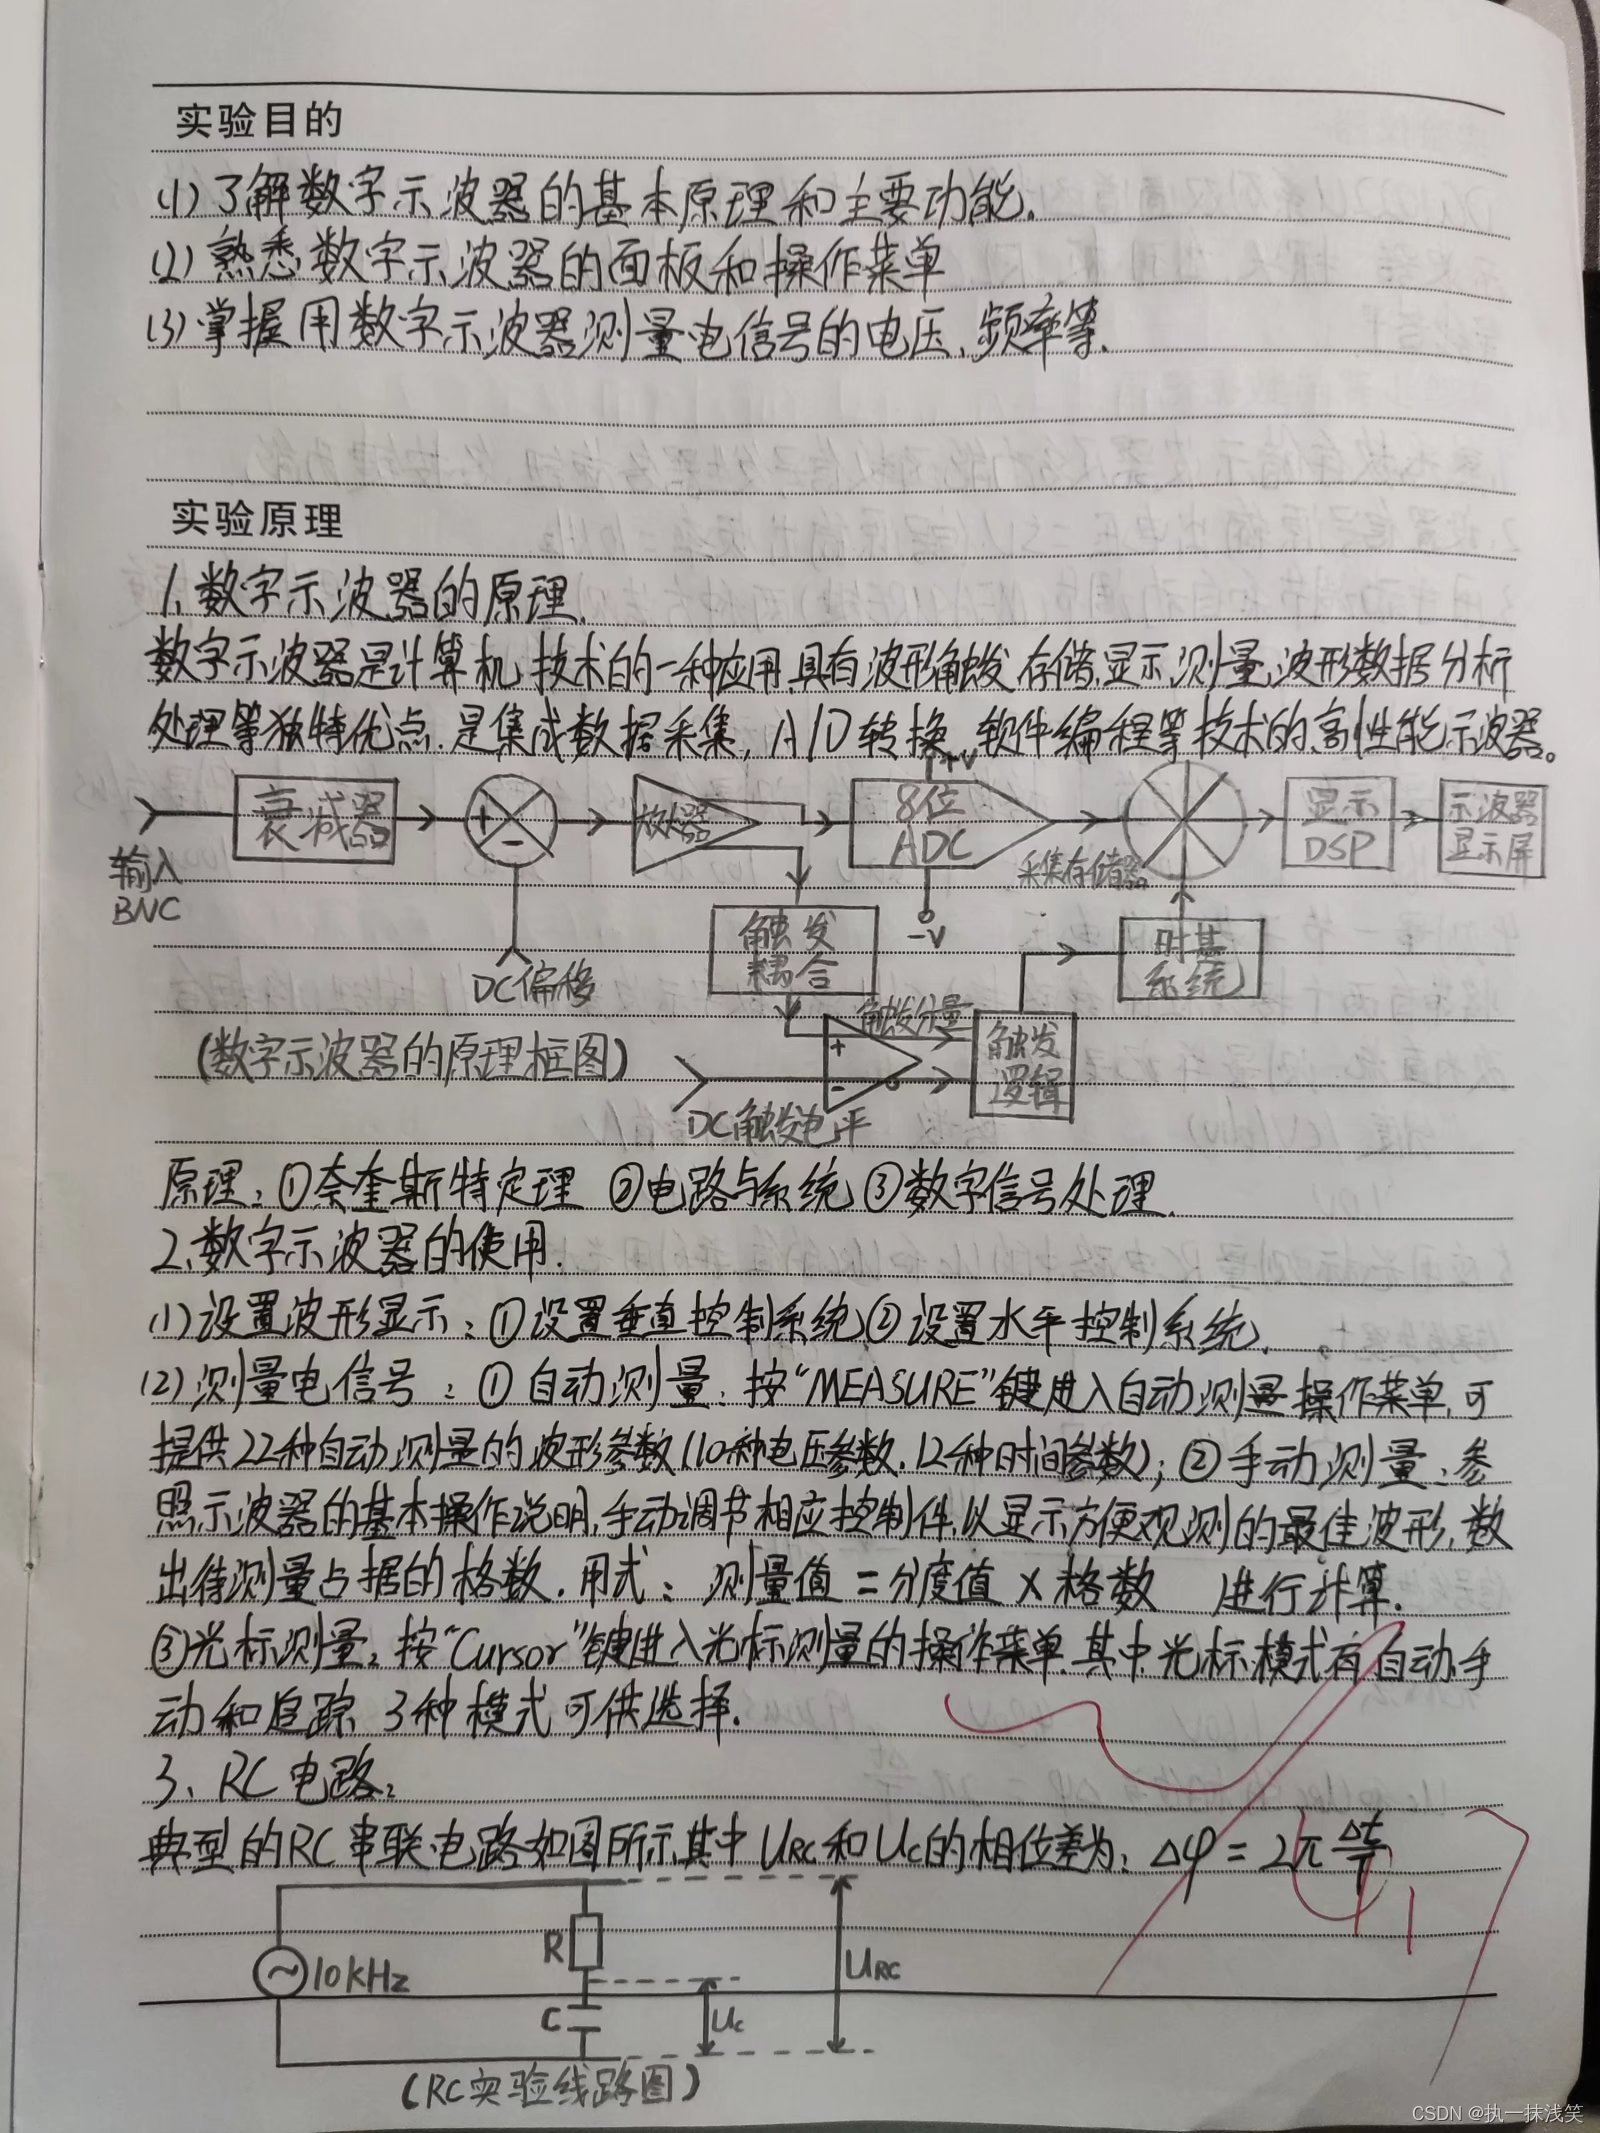 实验目的
(1)了解数字示波器的基本原理和主要功能.
(2)熟悉数字示波器的面板和操作菜单
(3)掌握用数字示波器测量电信号的电压、频率等.
实验原理
1、数字示波器的原理.
数字示波器是计算机技术的一种应用,具有波形触发,存储,显示,测量,波形数据分析
处理等独特优点.是集成数据采集,A/D转换,软件编程等技术的高性能示波器。
+V
衰减器
+
-
放大器
8位
ADC
显示
DSP
示波器
显示屏
输入
BNC
采集存储器
-V
触发
耦合
时基
系统
DC偏移
触发分量
(数字示波器的原理框图)
+
-
触发
逻辑
DC触发电平
原理:①奈奎斯特定理 ②电路与系统 ③数字信号处理.
2、数字示波器的使用.
(1)设置波形显示:①设置垂直控制系统②设置水平控制系统.
(2)测量电信号:①自动测量:按“MEASURE”键进入自动测量操作菜单,可
提供22种自动测量的波形参数(10种电压参数,12种时间参数);②手动测量:参
照示波器的基本操作说明,手动调节相应控制件,以显示方便观测的最佳波形,数
出待测量占据的格数.用式:测量值=分度值×格数 进行计算.
③光标测量:按“Cursor”键进入光标测量的操作菜单.其中光标模式有自动,手
动和追踪 3种模式可供选择.
3、RC电路:
典型的RC串联电路如图所示,其中URC和UC的相位差为:Δφ=2π Δt/T
R
10kHz
URC
C
Uc
(RC实验线路图)
CSDN @执一抹浅笑